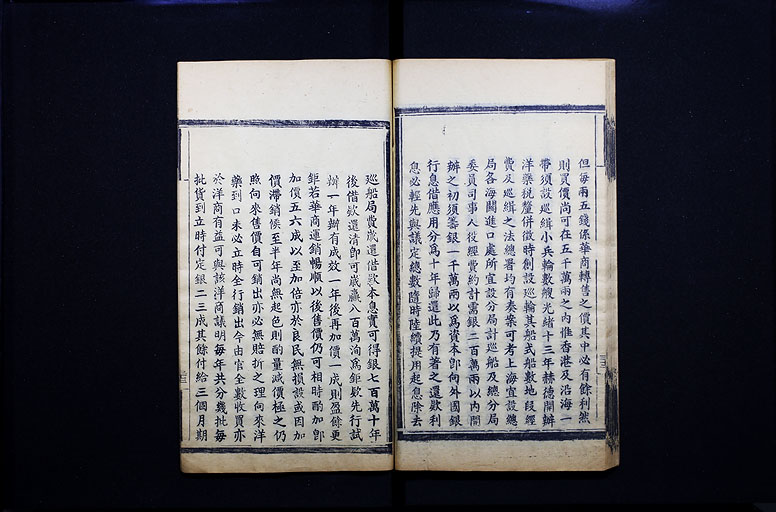 但每兩五錢係華商轉售之價其中必有餘利然
則買價尚可在五千萬兩之內惟香港及沿海一
帶須設巡緝小兵輪數艘光緒十三年赫德開辦
洋藥稅釐併徵時創設巡輪其船式船數地段經
費及巡緝之法總署均有奏案可考上海宜設總
局各海關進口處所宜設分局計巡船及總分局
委員司事人役經費約計需銀二百萬兩以內開
辦之初須籌銀一千萬兩以爲資本卽向外國銀
行息借應用分爲十年歸還此乃有著之還欵利
息必輕先與議定總數隨時陸續提用起息除去
巡船局費歲還借欵本息實可得銀七百萬十年
後借欵還清卽可歲贏八百萬洵爲鉅欵先行試
辦一年辦有成效一年後再加價一成則盈餘更
鉅若華商運銷暢順以後售價仍可相時酌加卽
加價五六成以至加倍亦於良民無損設或因加
價滯銷候至半年尚無起色則酌量減價極之仍
照向來售價自可銷出亦必無賠折之理向來洋
藥到口未必立時全行銷出今由官全數收買亦
於洋商有益可與該洋商議明每年共分幾批每
批貨到立時付定銀二三成其餘付給三個月期